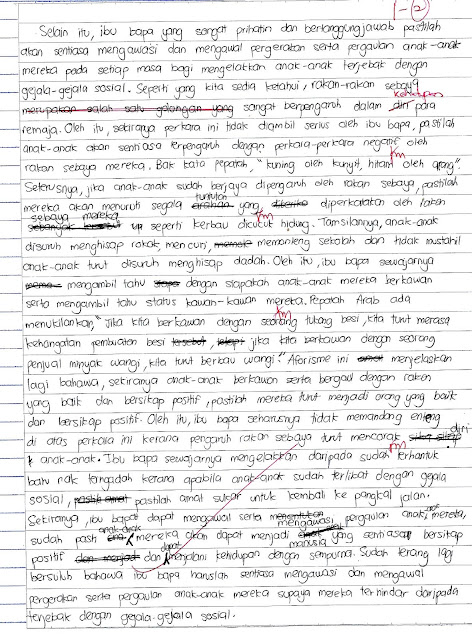 1-②
Selain itu, ibu bapa yang sangat prihatin dan bertanggungjawab pastilah
akan sentiasa mengawasi dan mengawal pergerakan serta pergaulan anak-anak
mereka pada setiap masa bagi mengelakkan anak-anak terjebak dengan
gejala-gejala sosial. Seperti yang kita sedia ketahui, rakan-rakan sebaya
kehidupan
merupakan salah satu golongan yang sangat berpengaruh dalam diri para
remaja. Oleh itu, sekiranya perkara ini tidak diambil serius oleh ibu bapa, pastilah
anak-anak akan sentiasa terpengaruh dengan perkara-perkara negatif oleh
rakan sebaya mereka. Bak kata pepatah, "kuning oleh kunyit, hitam oleh arang".
fm
Seterusnya, jika anak-anak sudah berjaya dipengaruh oleh rakan sebaya, pastilah
tuntutan
mereka akan menuruti segala arahan yang diperkatakan oleh
sebaya mereka fm
seperti kerbau dicucuk hidung. Tamsilannya, anak-anak
disuruh menghisap rokok, mencuri, memonteng sekolah dan tidak mustahil
anak-anak turut disuruh menghisap dadah. Oleh itu, ibu bapa sewajarnya
mengambil tahu dengan siapakah anak-anak mereka berkawan
serta mengambil tahu status kawan-kawan mereka. Pepatah Arab ada
fm
menukilankan, "Jika kita berkawan dengan seorang tukang besi, kita turut merasa
kehangatan pembuatan besi tersebut, tetapi jika kita berkawan dengan seorang
penjual minyak wangi, kita turut berbau wangi." Aforisme ini amat menjelaskan
lagi bahawa, sekiranya anak-anak berkawan serta bergaul dengan rakan
yang baik dan bersikap positif, pastilah mereka turut menjadi orang yang baik
dan bersikap positif. Oleh itu, ibu bapa seharusnya tidak memandang enteng
diri
di atas perkara ini kerana pengaruh rakan sebaya turut mencorak
fm
anak-anak. Ibu bapa sewajarnya mengelakkan daripada sudah terhantuk
baru nak tengadah kerana apabila anak-anak sudah terlibat dengan gejala
sosial, pastilah amat sukar untuk kembali ke pangkal jalan.
mengawasi
Sekiranya, ibu bapa dapat mengawal serta pergaulan anak, mereka,
anak-anak
sudah pasti mereka akan dapat menjadi yang sentiasa bersikap
dapat manusia
positif dan menjalani kehidupan dengan sempurna. Sudah terang lagi
bersuluh bahawa ibu bapa haruslah sentiasa mengawasi dan mengawal
pergerakan serta pergaulan anak-anak mereka supaya mereka terhindar daripada
terjebak dengan gejala-gejala sosial.